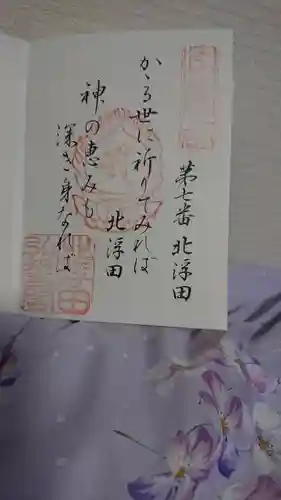 第七番 北浮田
かゝる世に祈りてみれば
北浮田
神の恵みも
深き身なれば